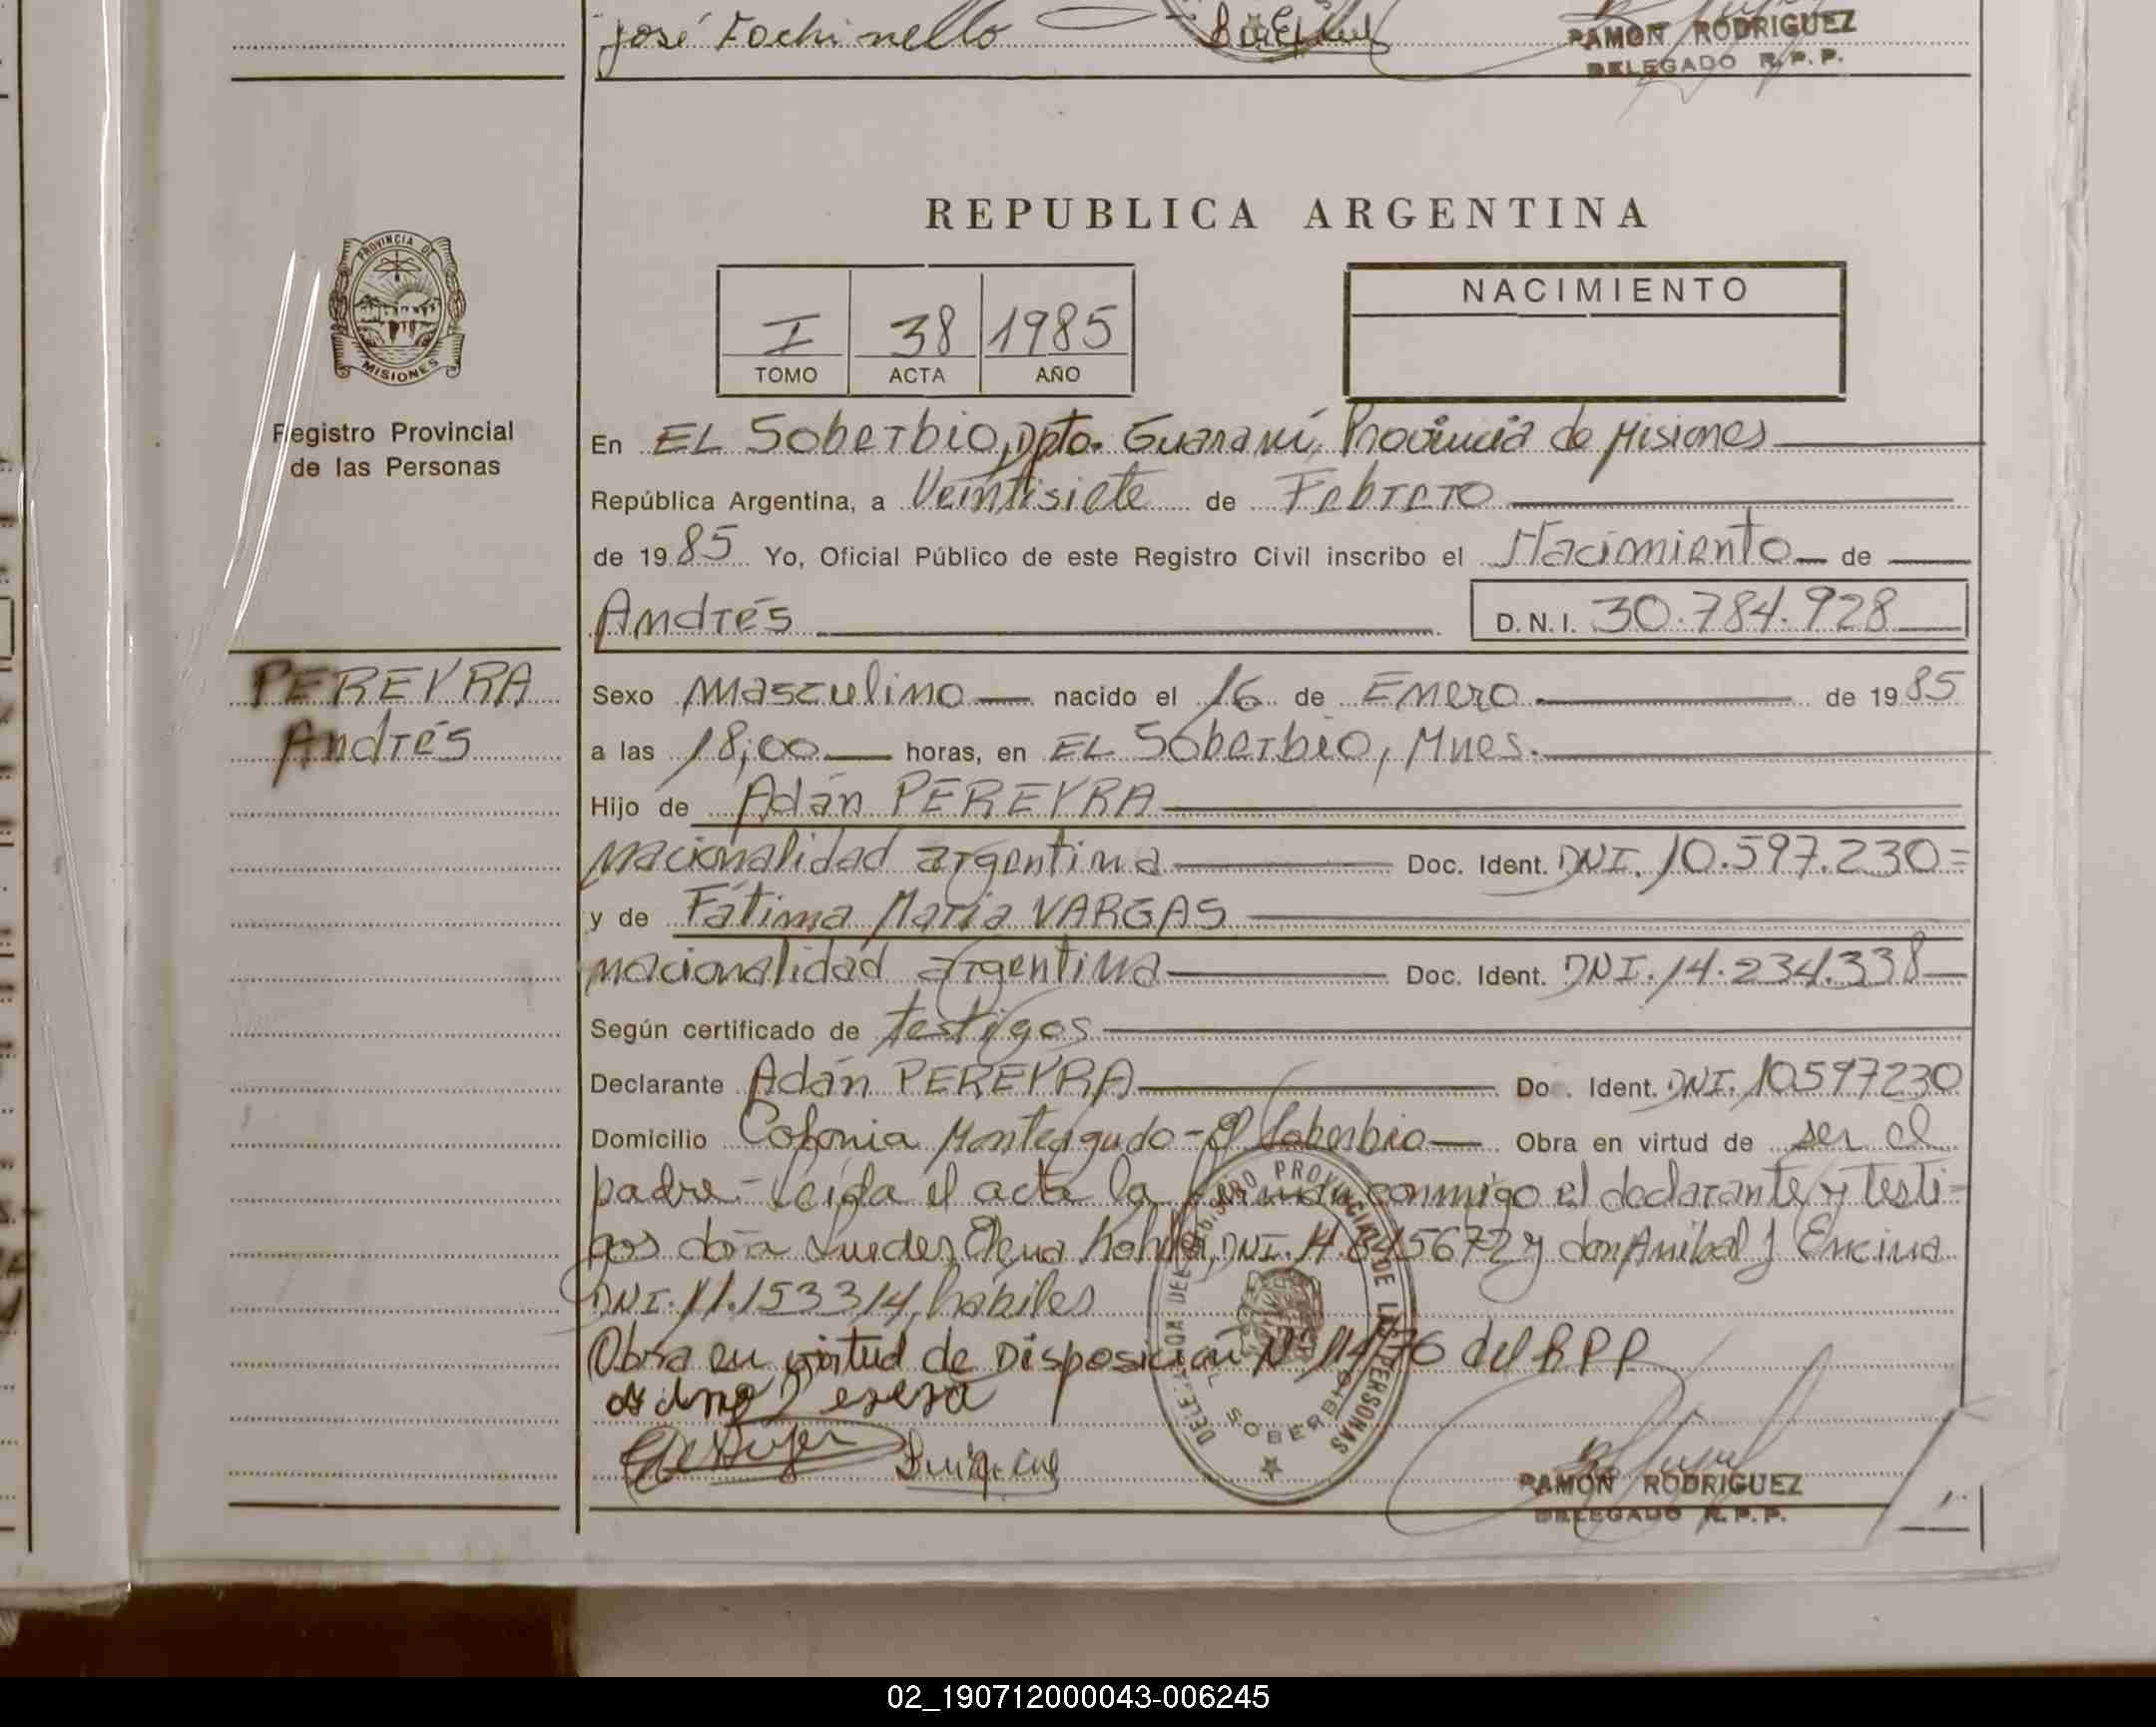 José Fochinello
RAMON RODRIGUEZ
DELEGADO R. P. P.
REPUBLICA ARGENTINA
PROVINCIA DE
MISIONES
Registro Provincial
de las Personas
I 38 1985
TOMO ACTA AÑO
NACIMIENTO
En EL Soberbio, Dpto. Guaraní, Provincia de Misiones
República Argentina, a Veintisiete de Febrero
de 1985 Yo, Oficial Público de este Registro Civil inscribo el Nacimiento de
Andrés D.N.I. 30.784.928
PEREYRA
Andrés
Sexo masculino nacido el 16 de Enero de 1985
a las 18;00 horas, en EL Soberbio, Mnes.
Hijo de Adán PEREYRA
nacionalidad argentina Doc. Ident. DNI. 10.597.230=
y de Fátima María VARGAS
nacionalidad argentina Doc. Ident. DNI. 14.234.338
Según certificado de testigos
Declarante Adán PEREYRA Do . Ident. DNI. 10597230
Domicilio Colonia Monteagudo - El Soberbio Obra en virtud de ser el
padre.- Leída el acta la firman conmigo el declarante y testi-
gos doña Elena DNI. y don Anibal J Encina
DNI. 11.153314, hábiles
Obra en virtud de Disposición Nº 114/76 del RPP
DELEGACION DEL REGISTRO PROVINCIAL DE LAS PERSONAS
EL SOBERBIO
RAMON RODRIGUEZ
DELEGADO R. P. P.
02_190712000043-006245